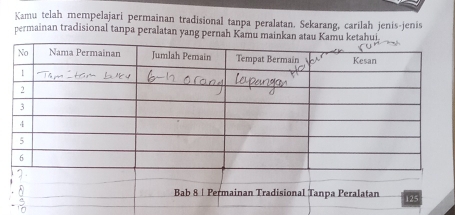 Kamu telah mempelajari permainan tradisional tanpa peralatan. Sekarang, carilah jenis-jenis
permainan tradisional tanpa peralatan yang pernah Kamu mainkan atau Kamu ketahui.
No Nama Permainan Jumlah Pemain Tempat Bermain Kesan
1 6-12 orang lapangan
2
3
4
5
6
7.
8
9
10
Bab 8 | Permainan Tradisional Tanpa Peralatan 125